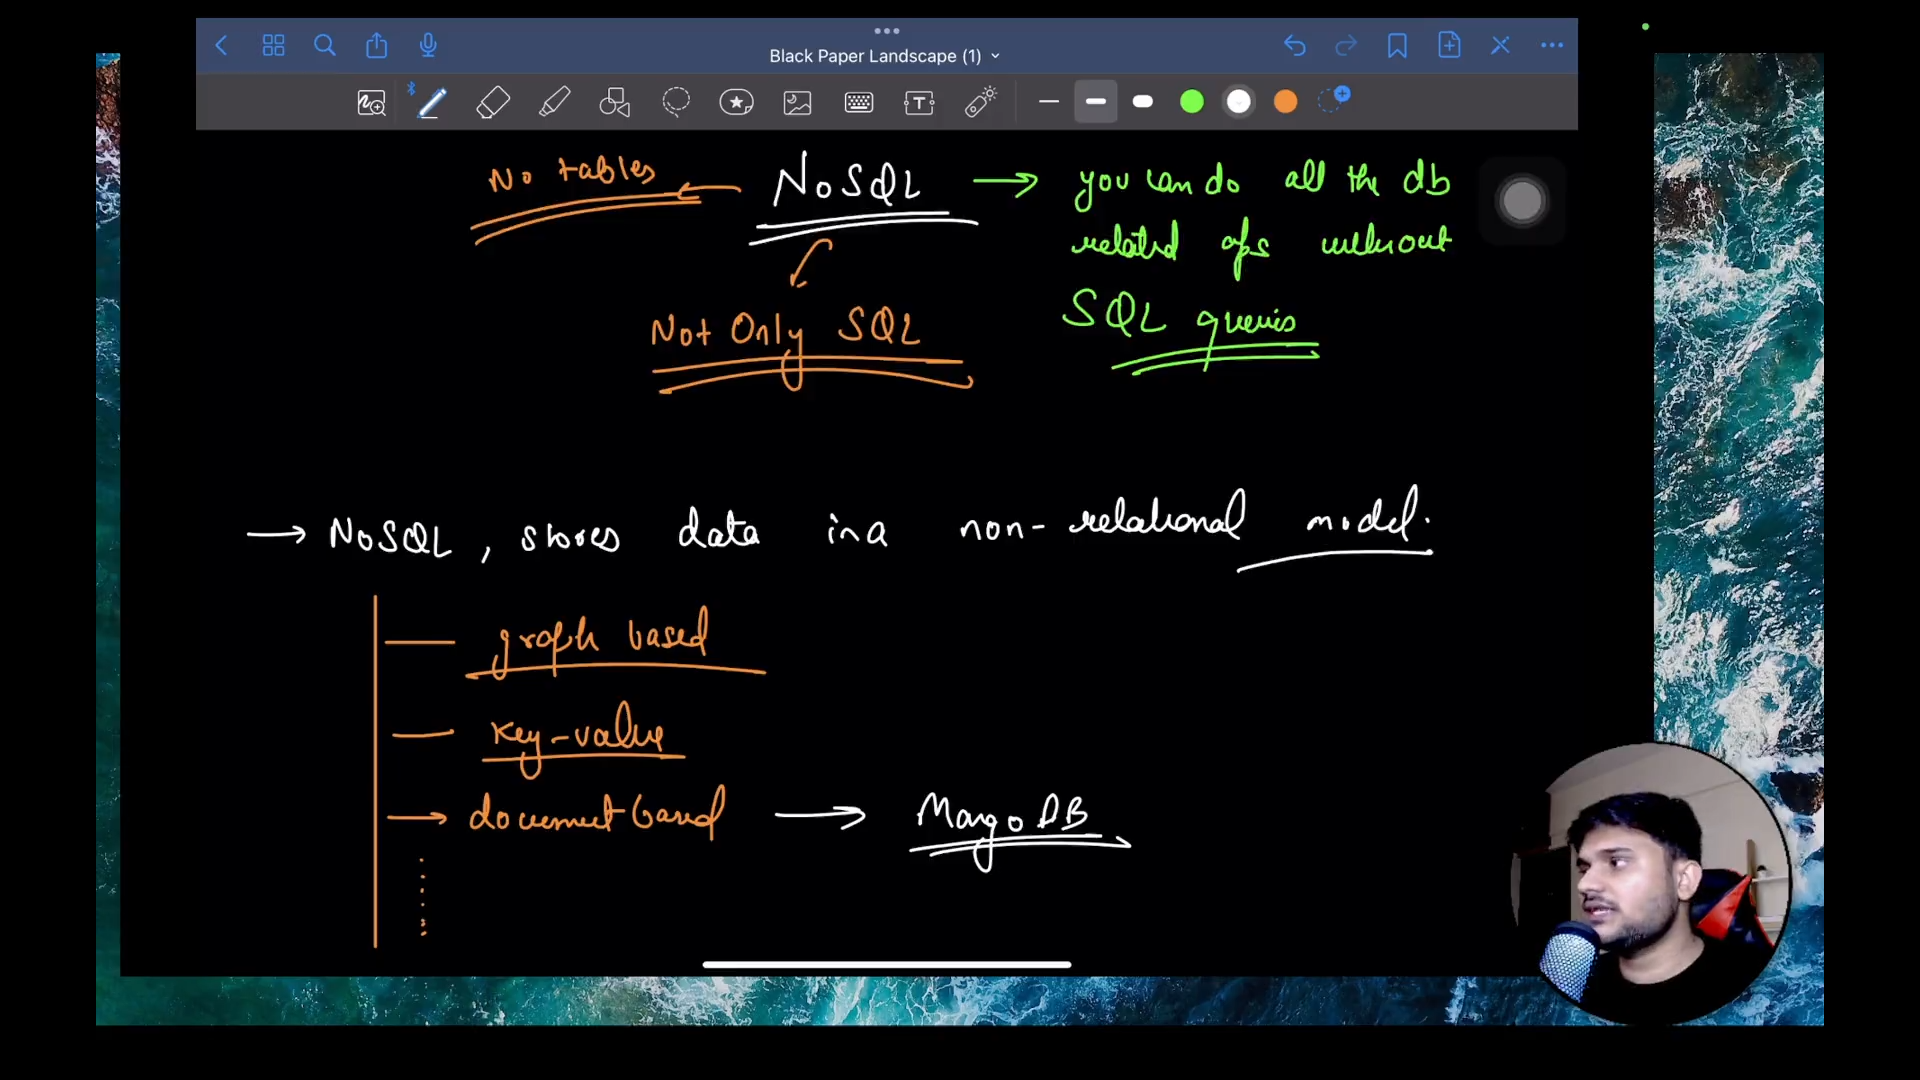 Black Paper Landscape (1)
No tables ← NoSQL → you can do all the db
related ops without
SQL queries
Not Only SQL
→ NoSQL, stores data in a non-relational model.
graph based
key-value
→ document based → MongoDB